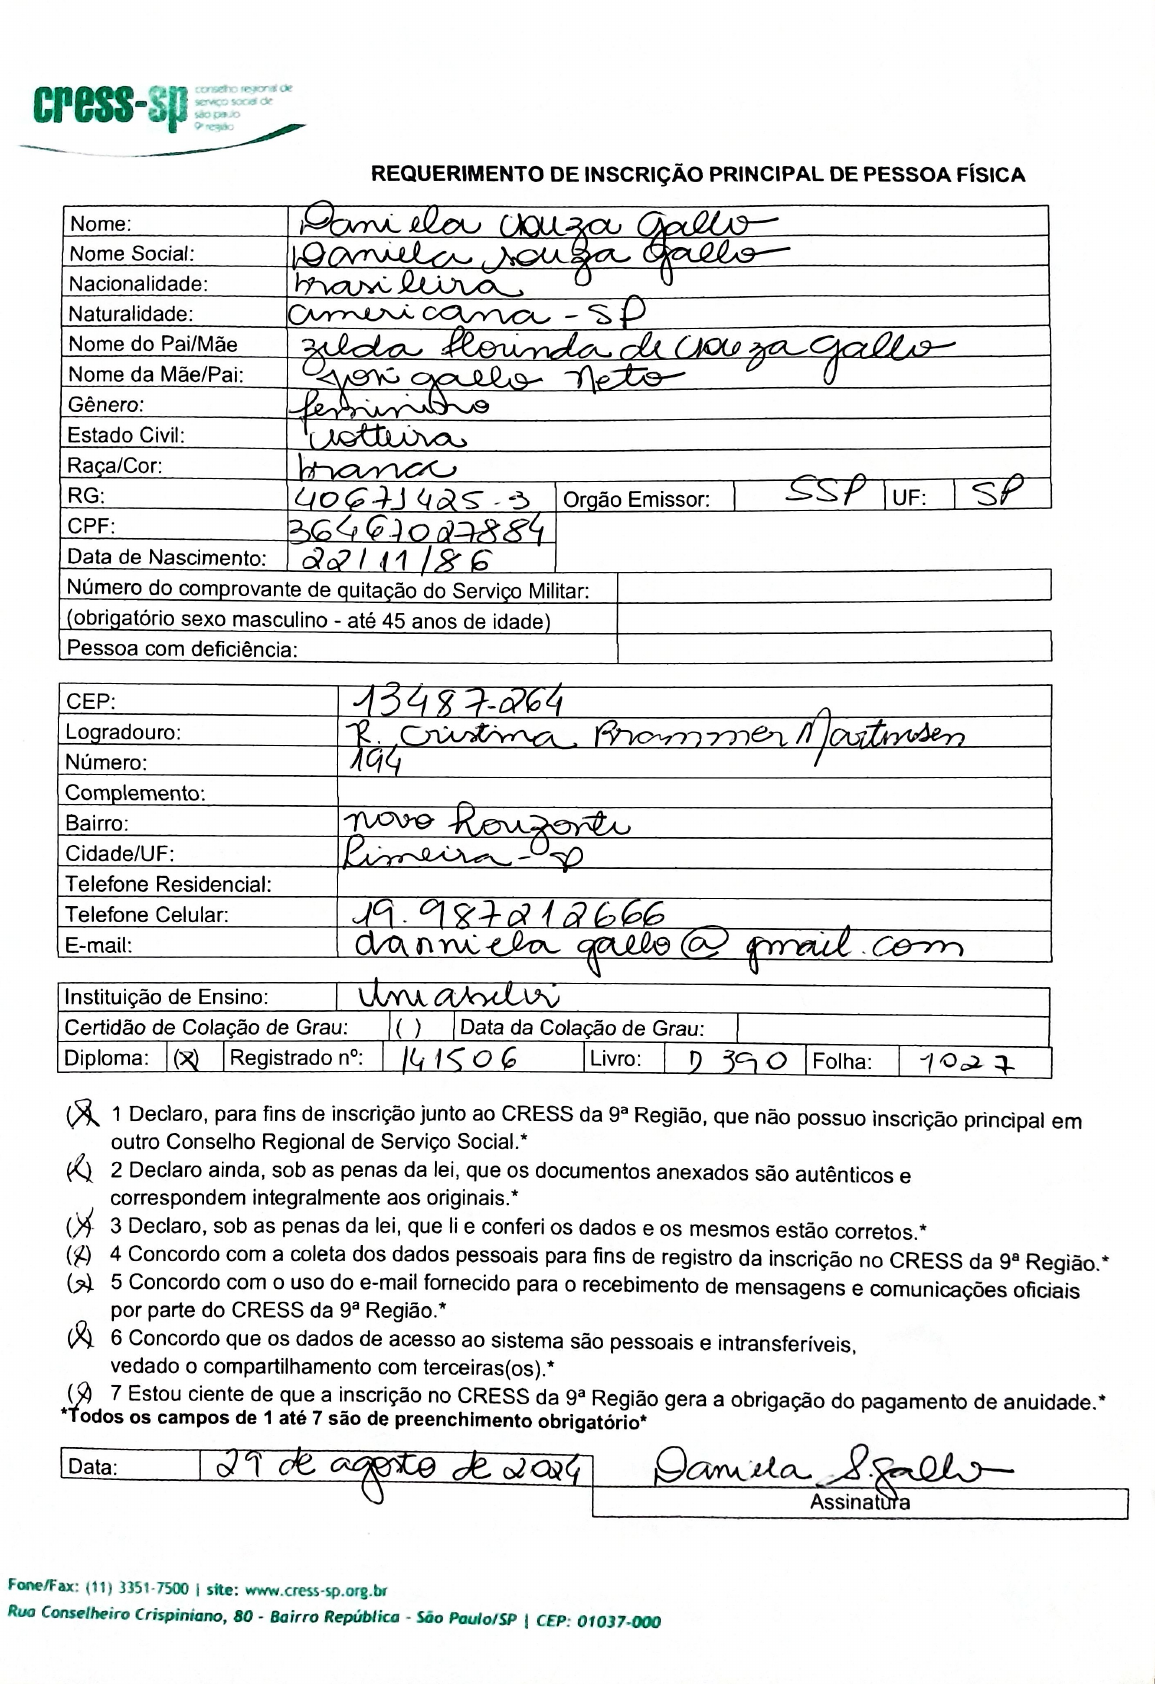 cress-sp conselho regional de
serviço social de
são paulo
9ª região
REQUERIMENTO DE INSCRIÇÃO PRINCIPAL DE PESSOA FÍSICA
Nome: Daniela Souza Gallo
Nome Social: Daniela Souza Gallo
Nacionalidade: brasileira
Naturalidade: americana - SP
Nome do Pai/Mãe zilda florinda de Souza Gallo
Nome da Mãe/Pai: José gallo Neto
Gênero: feminino
Estado Civil: solteira
Raça/Cor: branca
RG: 40671425-3 Orgão Emissor: SSP UF: SP
CPF: 36467027884
Data de Nascimento: 22/11/86
Número do comprovante de quitação do Serviço Militar:
(obrigatório sexo masculino - até 45 anos de idade)
Pessoa com deficiência:
CEP: 13487-264
Logradouro: R. Cristina Brammer Martinsen
Número: 194
Complemento:
Bairro: novo horizonte
Cidade/UF: Limeira - SP
Telefone Residencial:
Telefone Celular: 19.987212666
E-mail: danniela gallo@gmail.com
Instituição de Ensino: Uniasselvi
Certidão de Colação de Grau: ( ) Data da Colação de Grau:
Diploma: (x) Registrado nº: 141506 Livro: D 390 Folha: 1027
(X) 1 Declaro, para fins de inscrição junto ao CRESS da 9ª Região, que não possuo inscrição principal em
outro Conselho Regional de Serviço Social.*
(X) 2 Declaro ainda, sob as penas da lei, que os documentos anexados são autênticos e
correspondem integralmente aos originais.*
(X) 3 Declaro, sob as penas da lei, que li e conferi os dados e os mesmos estão corretos.*
(X) 4 Concordo com a coleta dos dados pessoais para fins de registro da inscrição no CRESS da 9ª Região.*
(X) 5 Concordo com o uso do e-mail fornecido para o recebimento de mensagens e comunicações oficiais
por parte do CRESS da 9ª Região.*
(X) 6 Concordo que os dados de acesso ao sistema são pessoais e intransferíveis,
vedado o compartilhamento com terceiras(os).*
(X) 7 Estou ciente de que a inscrição no CRESS da 9ª Região gera a obrigação do pagamento de anuidade.*
*Todos os campos de 1 até 7 são de preenchimento obrigatório*
Data: 29 de agosto de 2024 Daniela S. Gallo
Assinatura
Fone/Fax: (11) 3351-7500 | site: www.cress-sp.org.br
Rua Conselheiro Crispiniano, 80 - Bairro República - São Paulo/SP | CEP: 01037-000